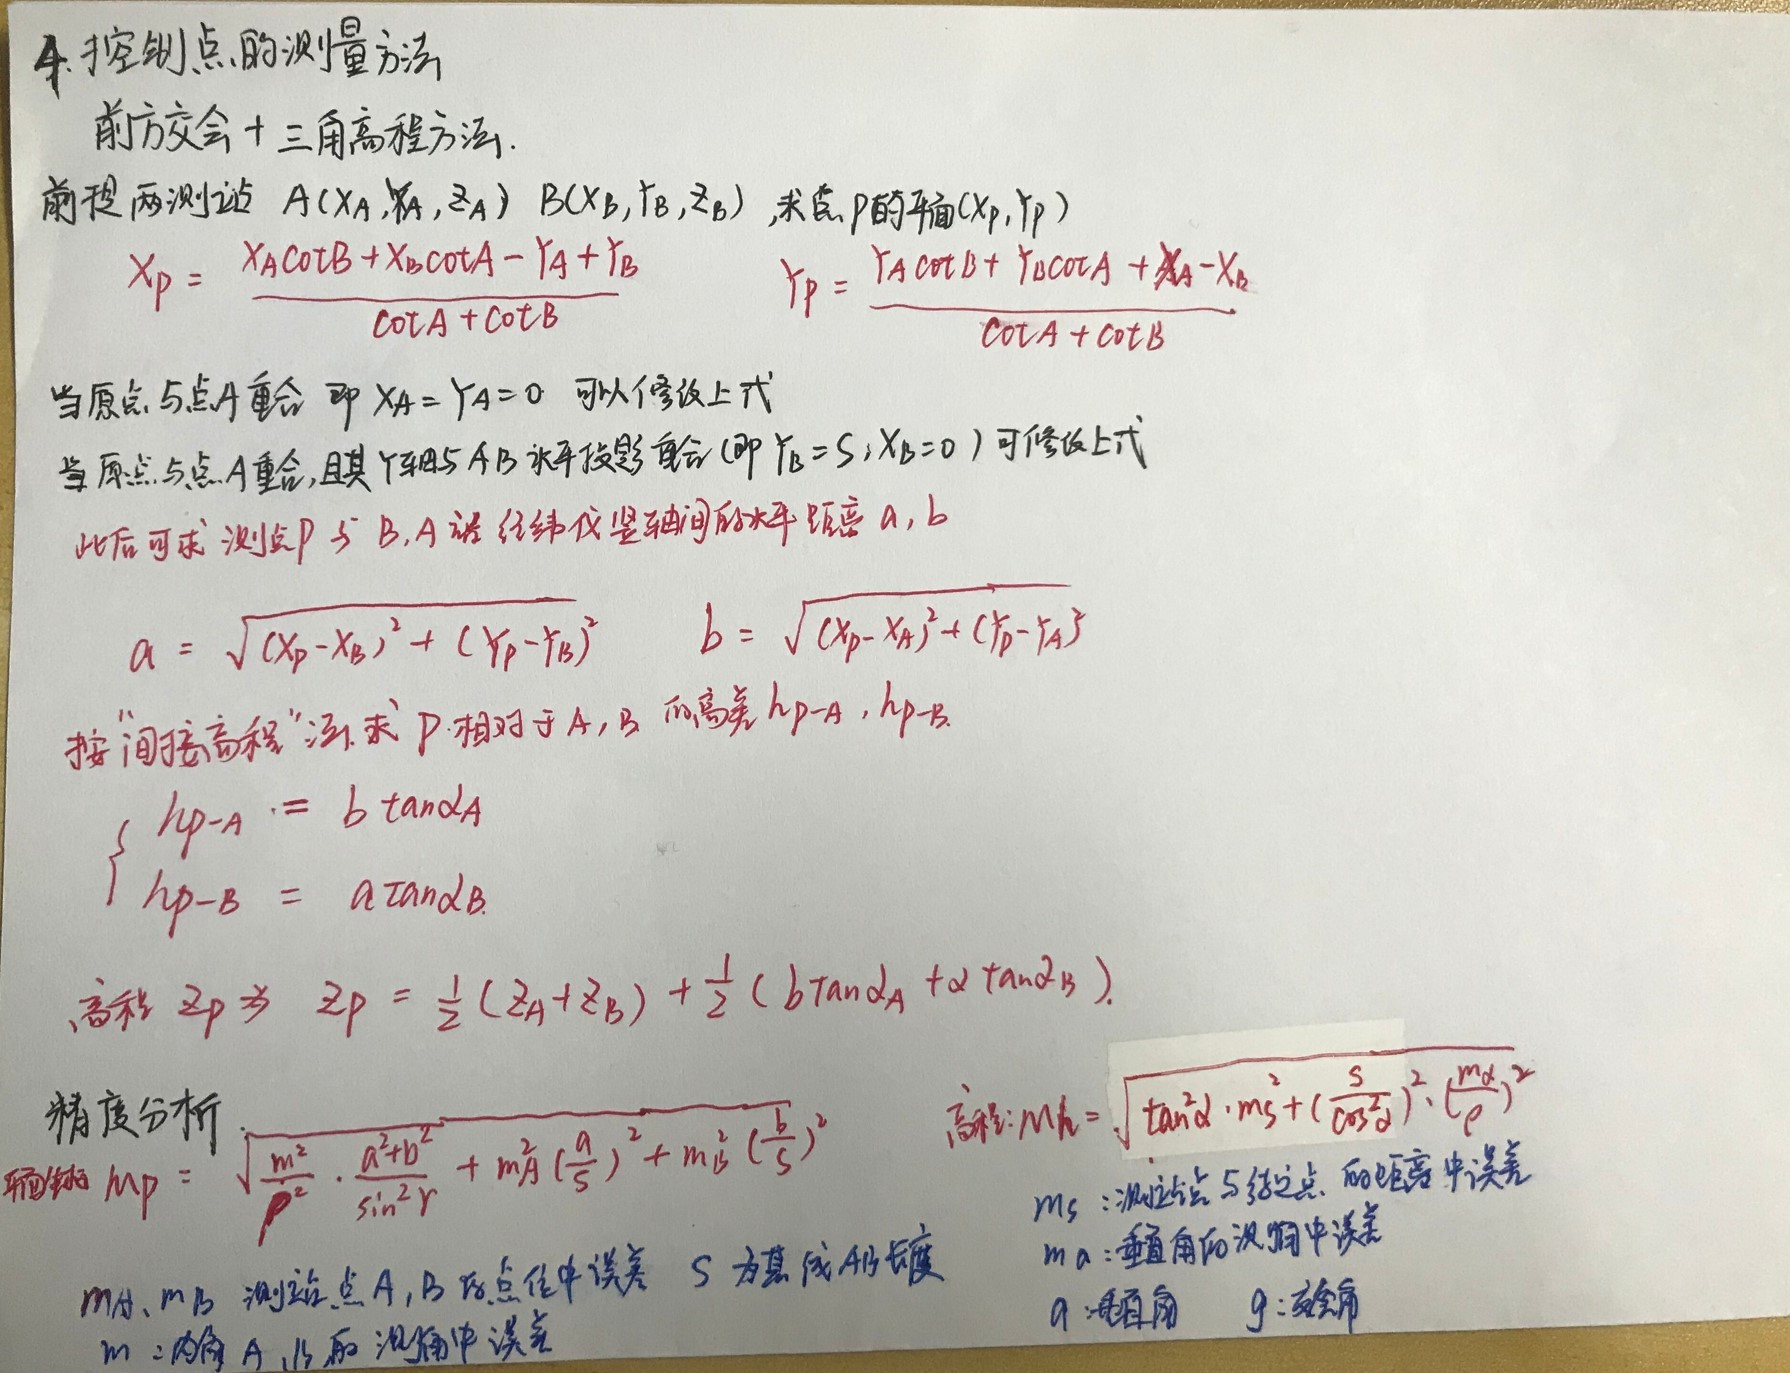 4.控制点的测量方法
前方交会+三角高程方法.
前提两测站 A(XA,YA,ZA) B(XB,YB,ZB),求点P的平面(XP,YP)
XP = (XAcotB+XBcotA-YA+YB)/(cotA+cotB) YP = (YAcotB+YBcotA+XA-XB)/(cotA+cotB)
当原点与点A重合 即 XA=YA=0 可以修改上式
当原点与点A重合,且其Y轴与AB水平投影重合(即YB=S,XB=0)可修改上式
此后可求测点P与B,A 经纬仪竖轴间的水平距离a,b
a = √((XP-XB)²+(YP-YB)²) b = √((XP-XA)²+(YP-YA)²)
按"间接高程"法.求P相对于A,B的高差hP-A,hP-B.
hP-A = b tanαA
hP-B = a tanαB.
高程ZP为 ZP = ½(ZA+ZB)+½(b tanαA+α tanαB).
精度分析
mP = √(m²/ρ²·(a²+b²)/sin²γ+mA²(a/S)²+mB²(b/S)²) 高程:Mh = √(tan²α·ms²+(S/cos²α)²·(mα/ρ)²)
mA、mB 测站点A,B的点位中误差 S为基线AB长度
m:内角A,B的观测中误差
ms:测站点与待定点的距离中误差
ma:垂直角的观测中误差
a:垂直角 g:交会角